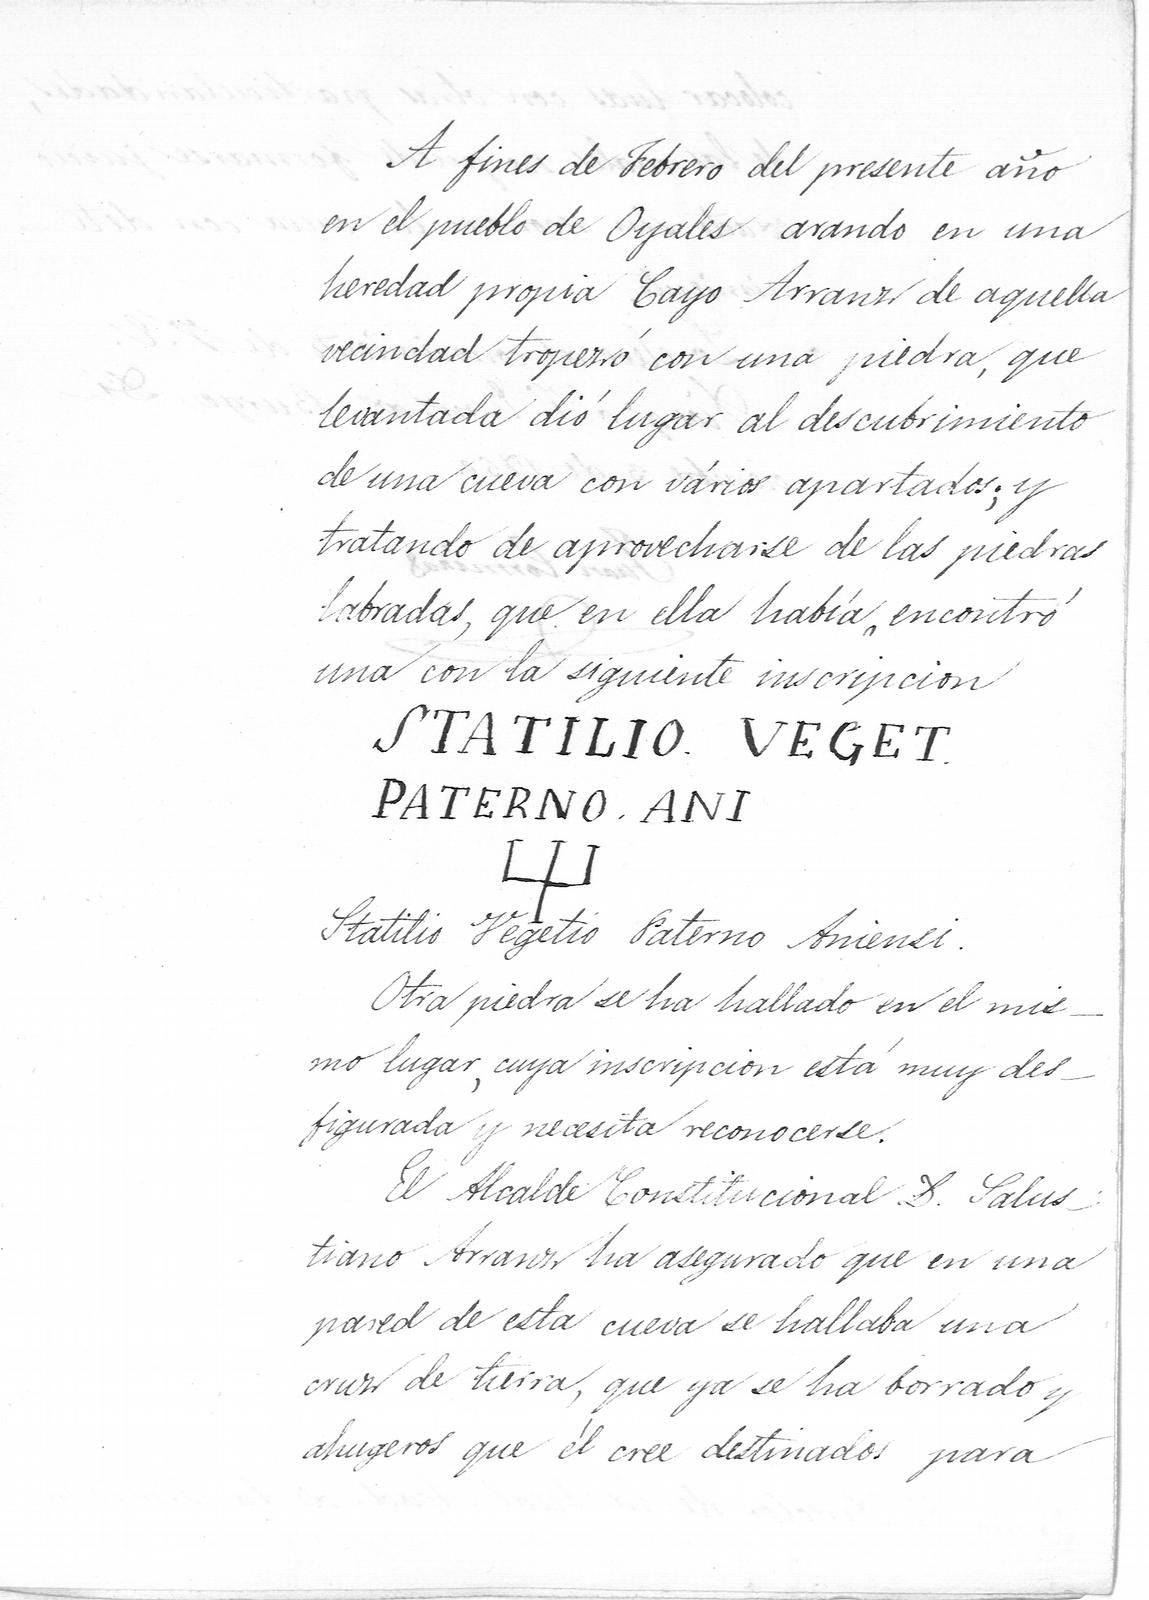 A fines de Febrero del presente año
en el pueblo de Oyales arando en una
heredad propia Cayo Arranz de aquella
vecindad tropezó con una piedra, que
levantada dió lugar al descubrimiento
de una cueva con vários apartados; y
tratando de aprovecharse de las piedras
labradas, que en ella había, encontró
una con la siguiente inscripcion
STATILIO. VEGET.
PATERNO. ANI
Statilio Vegetio Paterno Aniensi.
Otra piedra se ha hallado en el mis-
mo lugar, cuya inscripcion está muy des-
figurada y necesita reconocerse.
El Alcalde Constitucional D. Salus-
tiano Arranz ha asegurado que en una
pared de esta cueva se hallaba una
cruz de tierra, que ya se ha borrado y
ahugeros que él cree destinados para